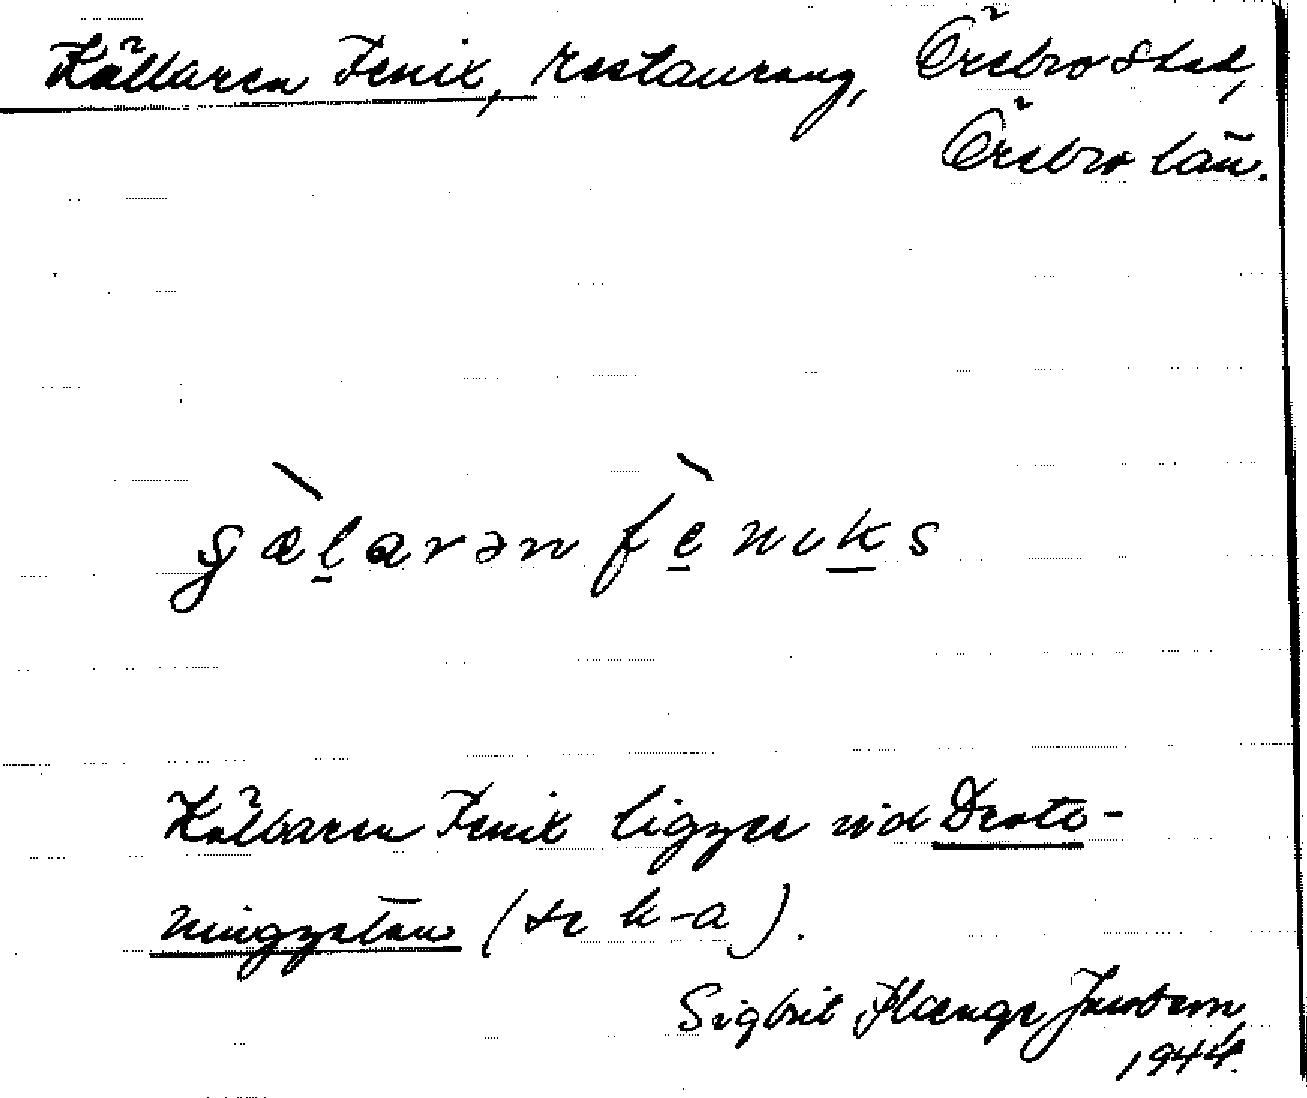 Källaren Fenix, restaurang, Örebro stad,
Örebro län.
gælarən feniks
Källaren Fenix ligger vid Drott-
ninggatan (se k-a).
Sigbrit Plænge Jacobson
1944.